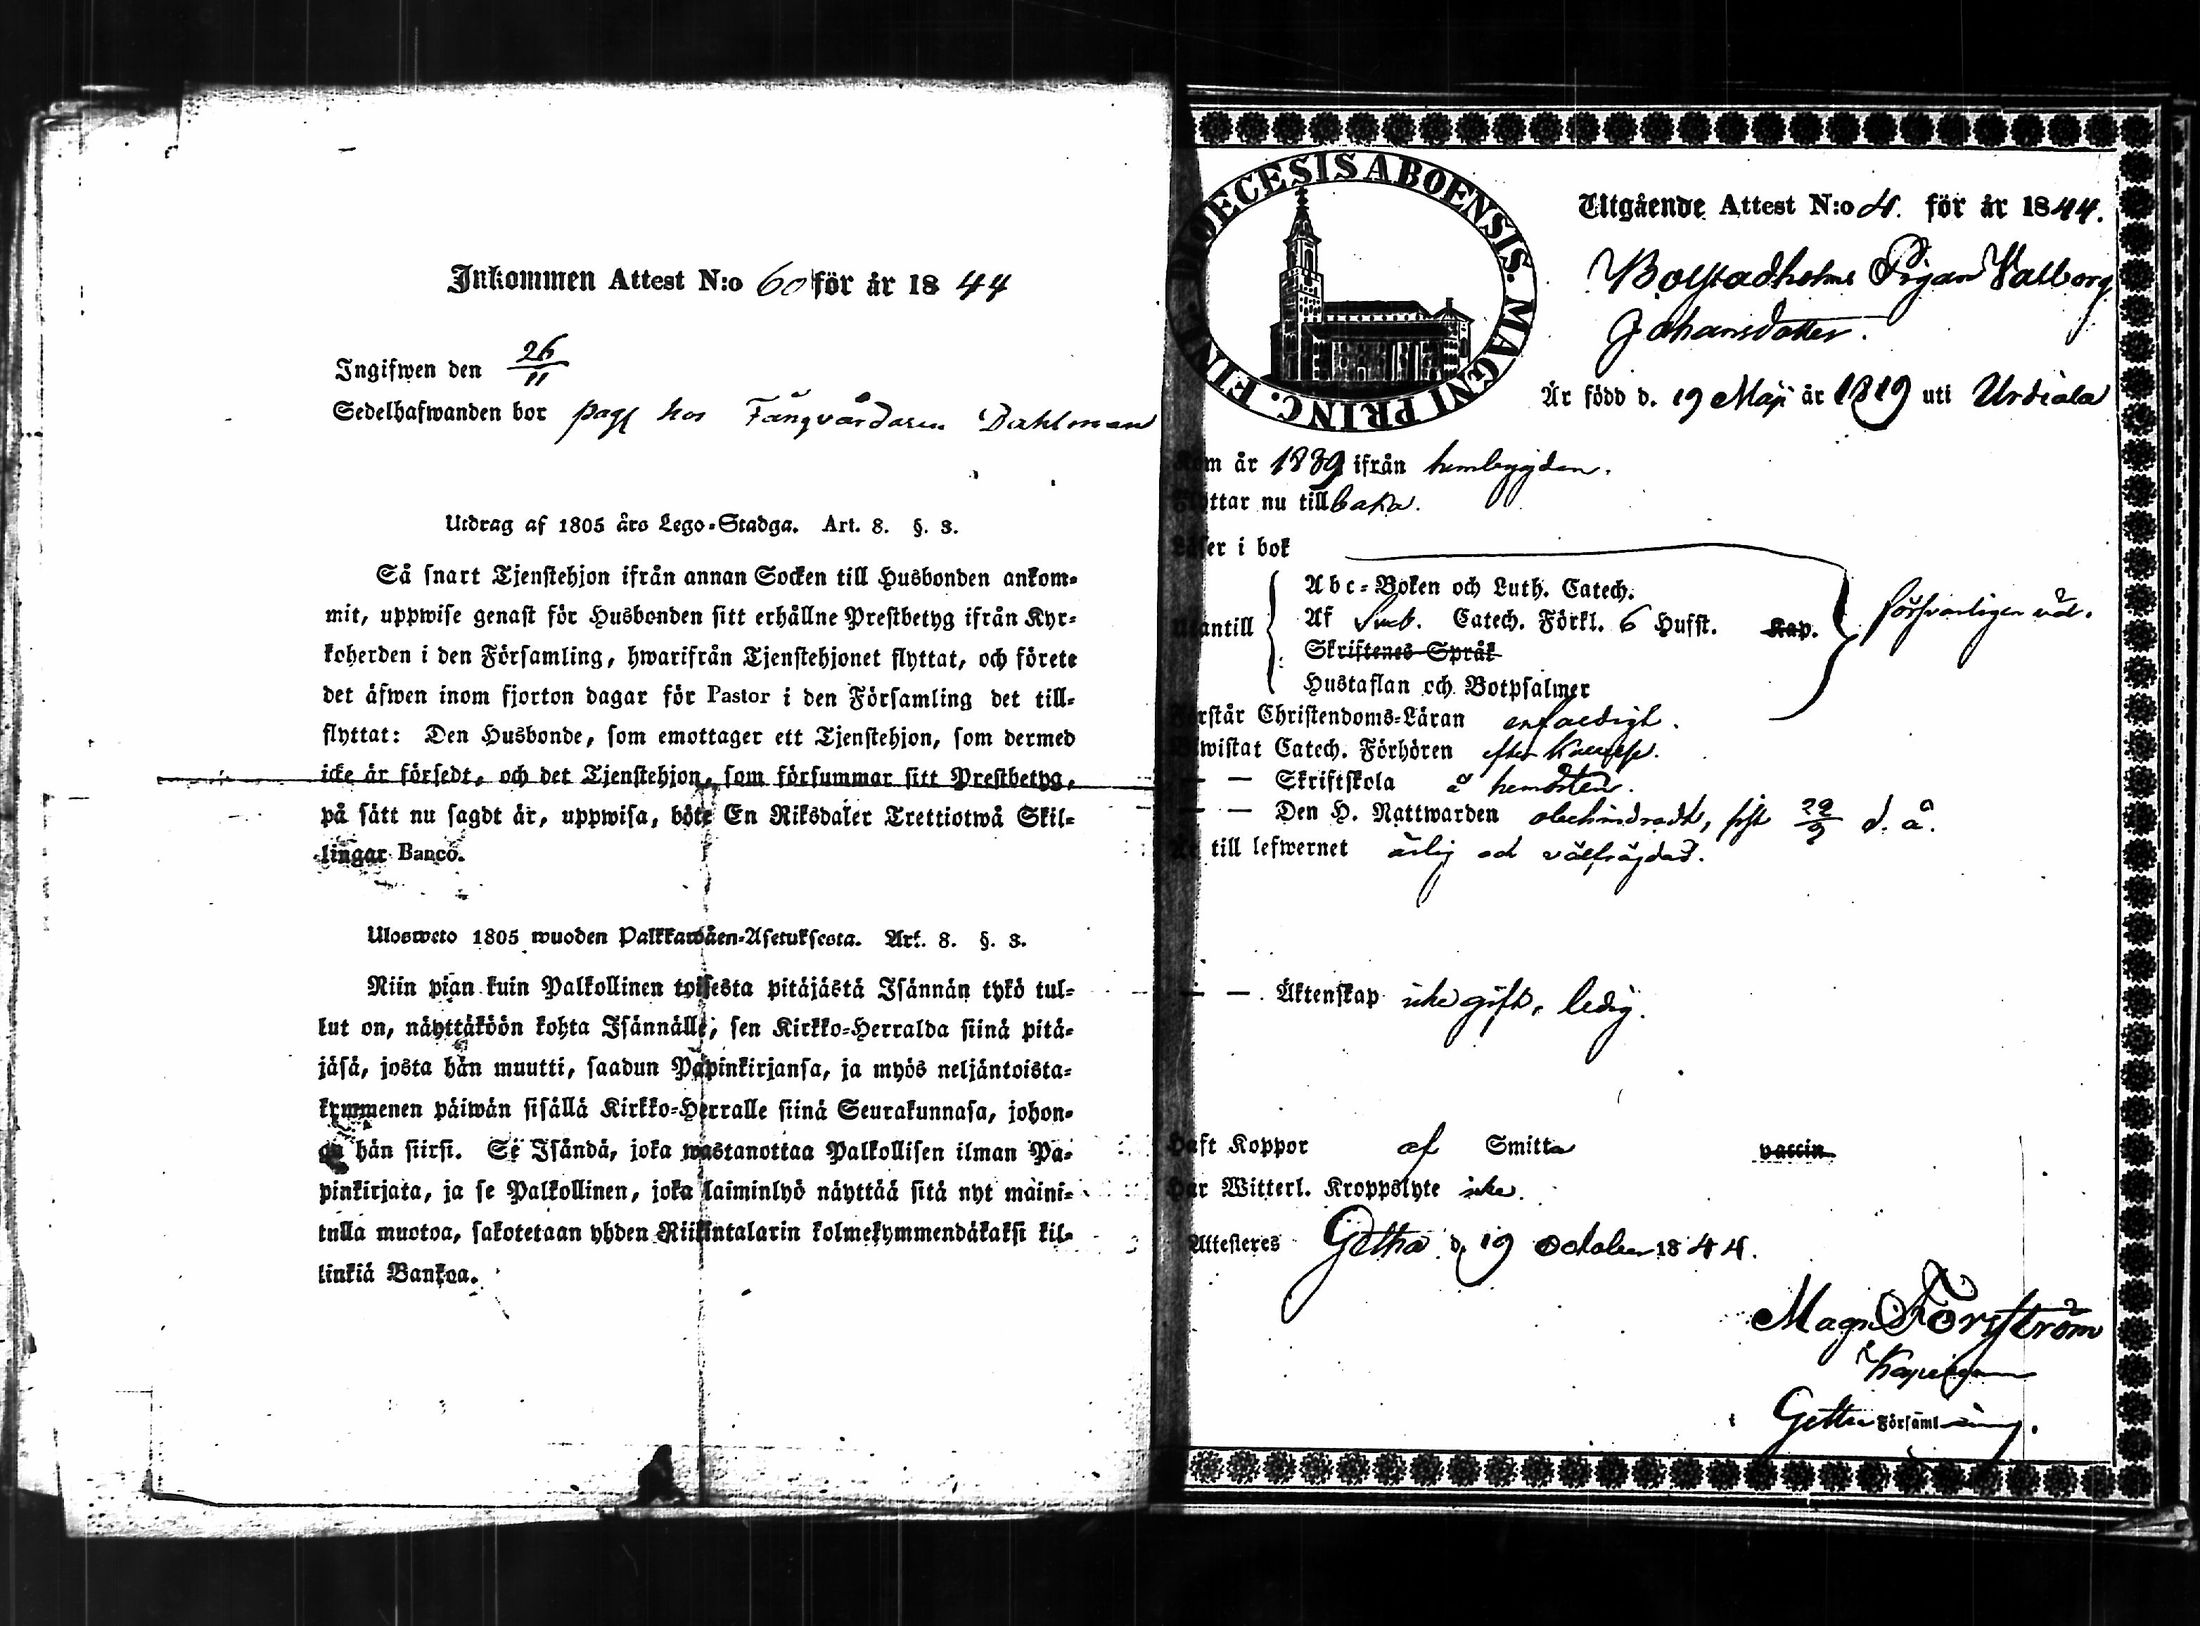 Inkommen Attest N:o 60 för år 1844
Ingifwen den 26/11
Sedelhafwanden bor hos Fångvårdaren Dahlman
Utdrag af 1805 års Lego-Stadga. Art. 8. §. 3.
Så snart Tjenstehjon ifrån annan Socken till Husbonden ankom-
mit, uppwise genast för Husbonden sitt erhållne Prestbetyg ifrån Kyr-
koherden i den Församling, hwarifrån Tjenstehjonet flyttat, och förete
det äfwen inom fjorton dagar för Pastor i den Församling det till-
flyttat: Den Husbonde, som emottager ett Tjenstehjon, som dermed
icke är försedt, och det Tjenstehjon, som försummar sitt Prestbetyg,
på sätt nu sagdt är, uppwisa, böte En Riksdaler Trettiotwå Skil-
lingar Banco.
Ulosweto 1805 wuoden Palkkawäen-Asetuksesta. Art. 8. §. 3.
Niin pian kuin Palkollinen toisesta pitäjästä Isännän tykö tul-
lut on, näyttäköön kohta Isännälle, sen Kirkko-Herralda siinä pitä-
jäsä, josta hän muutti, saadun Papinkirjansa, ja myös neljäntoista-
kymmenen päiwän sisällä Kirkko-Herralle siinä Seurakunnasa, johon-
ga hän siirsi. Se Isändä, joka wastanottaa Palkollisen ilman Pa-
pinkirjata, ja se Palkollinen, joka laiminlyö näyttää sitä nyt maini-
tulla muotoa, sakotetaan yhden Riikintalarin kolmekymmendäkaksi kil-
linkiä Bankoa.
DIOECESIS ABOENSIS. MAGNI PRINC. FINL.
Utgående Attest N:o 4. för år 1844.
Bolstadholms Pigan Valborg
Johansdotter.
Är född d. 19 Maji år 1819 uti Urdiala
Kom år 1839 ifrån hembygden.
Flyttar nu tillbaka.
Läser i bok
Utantill
Abc-Boken och Luth. Catech.
Af Sveb. Catech. Förkl. 6 Hufst. Kap. försvarligen väl.
Skriftenes Språk
Hustaflan och Botpsalmer
Förstår Christendoms-Läran enfaldigt.
Biwistat Catech. Förhören
— — Skriftskola å hemorten.
— — Den H. Nattwarden obehindradt, sist 29/9 d. å.
Är till lefwernet ärlig och välfrägdad.
— — Äktenskap icke gift, ledig.
Haft Koppor af Smitta vaccin.
Har Witterl. Kroppslyte icke.
Attesteres Getha d. 19 October 1844.
Magn Forsström
Kapellan
i Getha Församling.